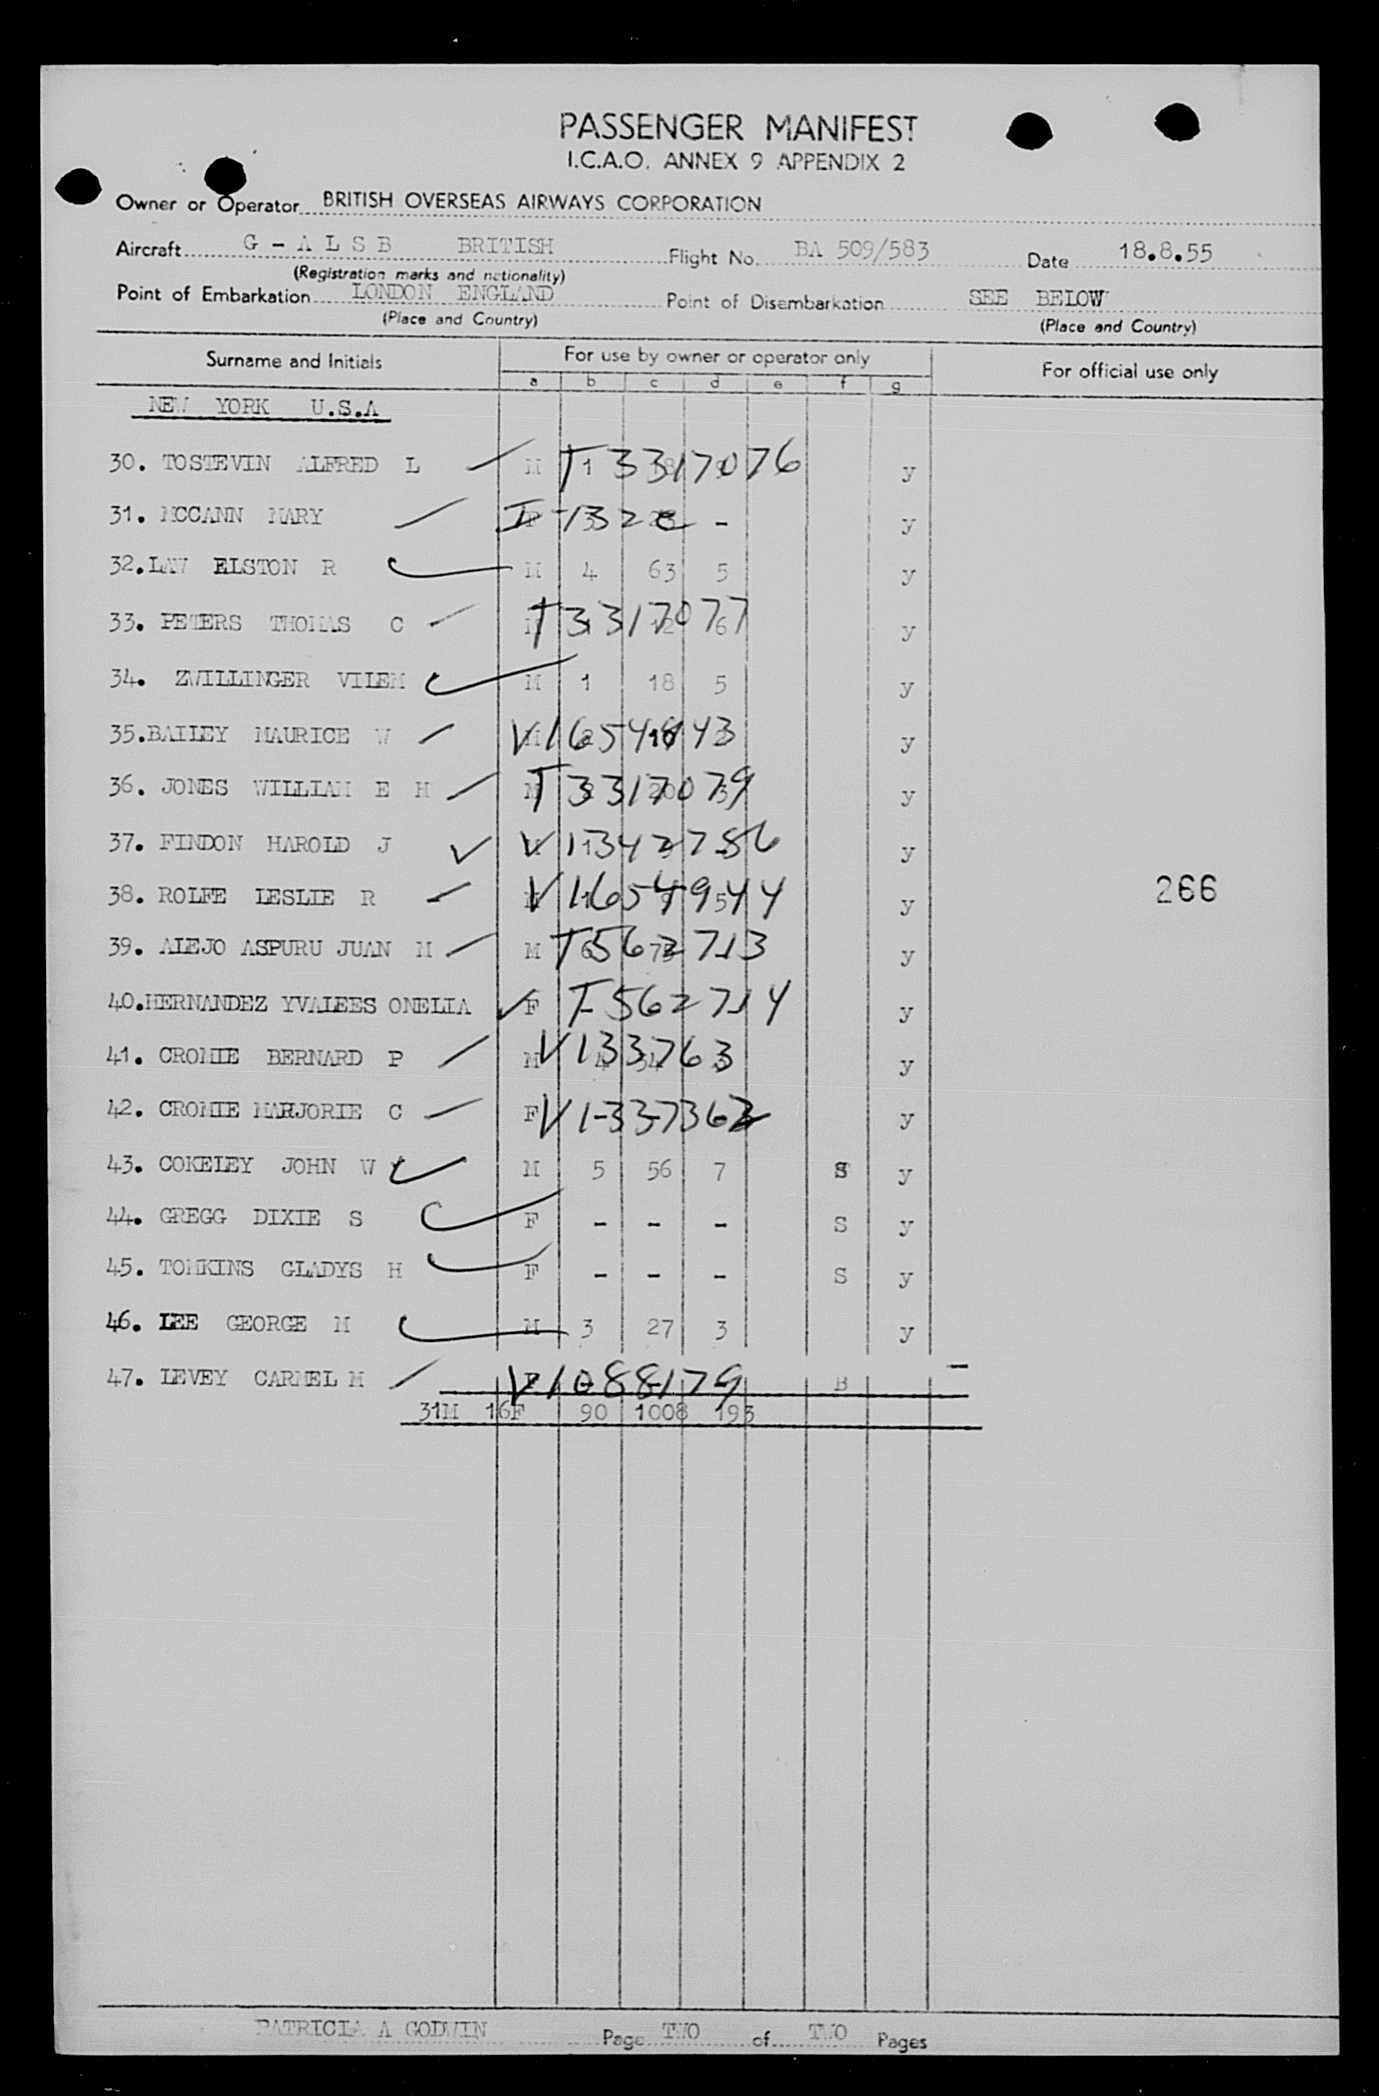 PASSENGER MANIFEST
I.C.A.O. ANNEX 9 APPENDIX 2
Owner or Operator BRITISH OVERSEAS AIRWAYS CORPORATION
Aircraft G - A L S B BRITISH Flight No. BA 509/583 Date 18.8.55
(Registration marks and nationality)
Point of Embarkation LONDON ENGLAND Point of Disembarkation SEE BELOW
(Place and Country) (Place and Country)
Surname and Initials For use by owner or operator only For official use only
a b c d e f g
NEW YORK U.S.A
30. TOSTEVIN ALFRED L M T 3317076 y
31. MCCANN MARY - y
32. LAW ELSTON R M 4 63 5 y
33. PETERS THOMAS C T 3317077 y
34. ZWILLINGER VILEM M 1 18 5 y
35. BAILEY MAURICE W V1654943 y
36. JONES WILLIAM E H T 3317079 y
37. FINDON HAROLD J V 1342786 y
38. ROLFE LESLIE R V1654944 y
266
39. ALEJO ASPURU JUAN M M T562713 y
40. HERNANDEZ YVALEES ONELIA F T562714 y
41. CROMIE BERNARD P M V133763 y
42. CROMIE MARJORIE C F V1337362 y
43. COKELEY JOHN W M 5 56 7 S y
44. GREGG DIXIE S F - - - S y
45. TOMKINS GLADYS H F - - - S y
46. LEE GEORGE M M 3 27 3 y
47. LEVEY CARMEL M V1088179 B
31M 16F 90 1008 193
PATRICIA A GODWIN Page TWO of TWO Pages